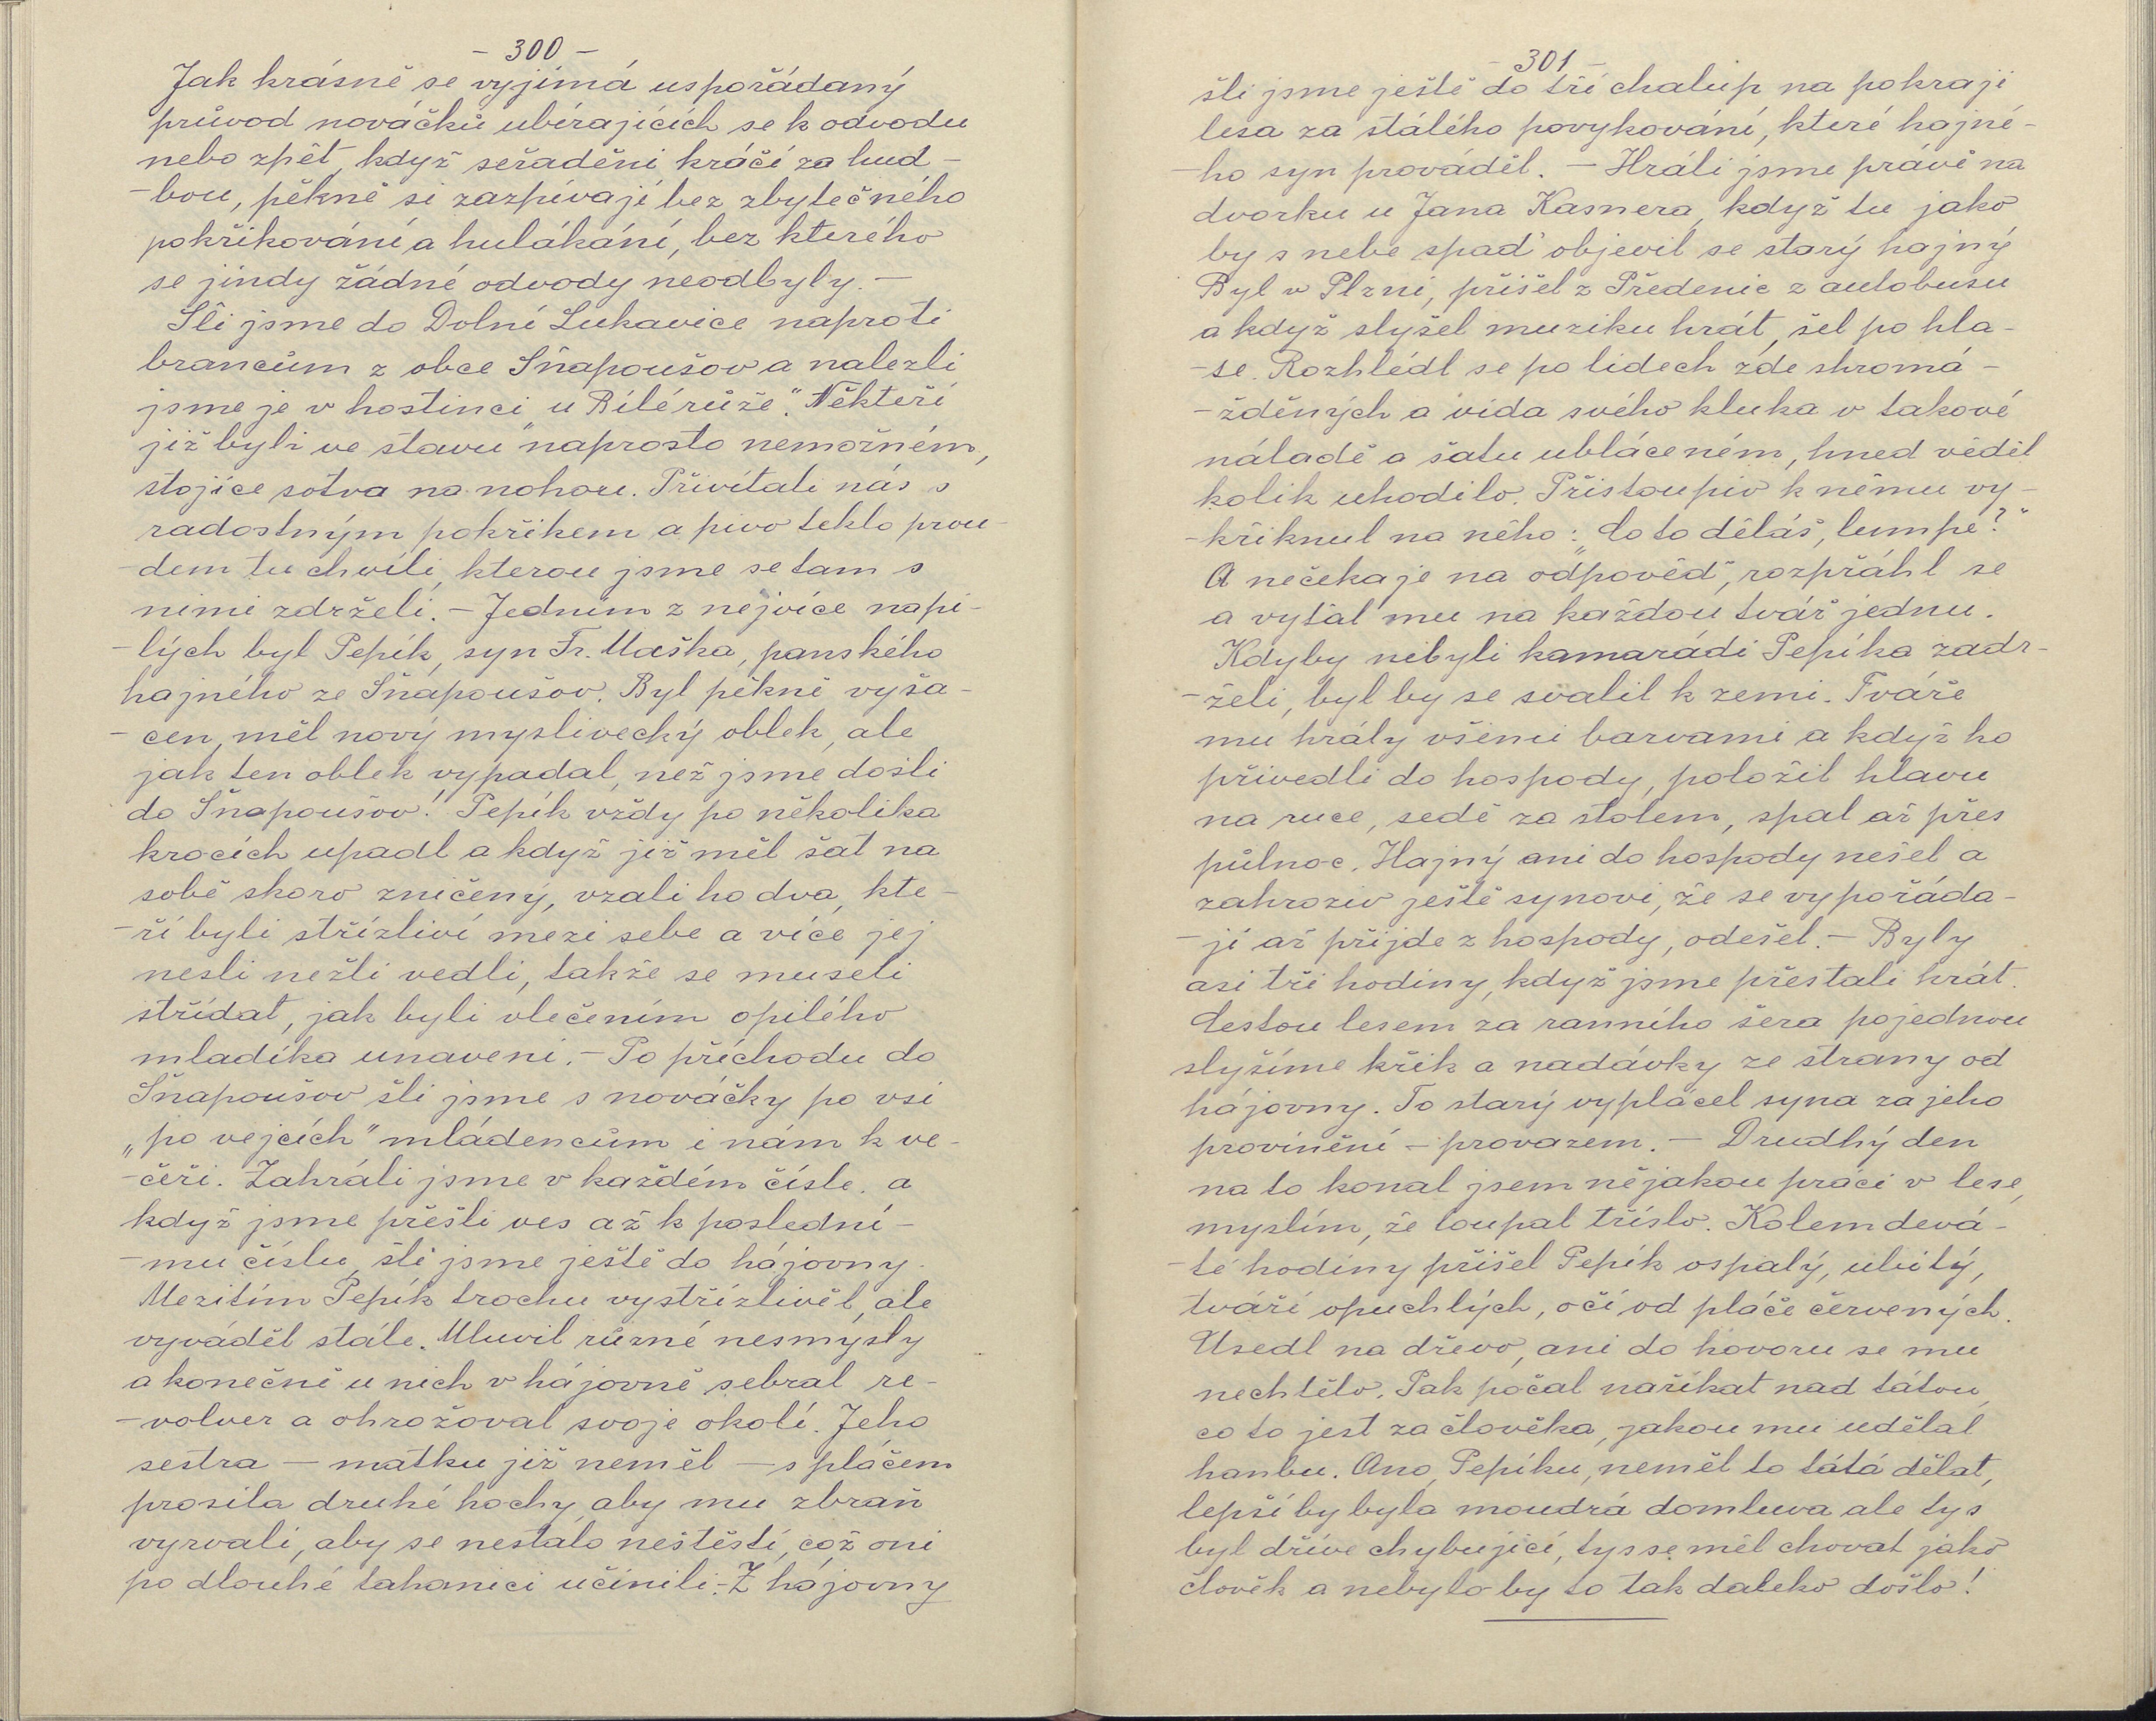 - 300 -
Jak krásně se vyjímá uspořádaný
průvod nováčků ubírajících se k odvodu
nebo zpět, když seřaděni kráčí za hud-
-bou, pěkně si zazpívají bez zbytečného
pokřikování a hulákání, bez kterého
se jindy žádné odvody neodbyly. -
Šli jsme do Dolní Lukavice naproti
brancům z obce Šňapoušov a nalezli
jsme je v hostinci „u Bílé růže". Někteří
již byli ve stavu naprosto nemožném,
stojíce sotva na nohou. Přivítali nás s
radostným pokřikem a pivo teklo prou-
-dem tu chvíli, kterou jsme se tam s
nimi zdrželi. - Jedním z nejvíce napi-
-lých byl Pepík, syn Fr. Maška, panského
hajného ze Šňapoušov. Byl pěkně vyša-
-cen, měl nový myslivecký oblek, ale
jak ten oblek vypadal, než jsme došli
do Šňapoušov! Pepík vždy po několika
krocích upadl a když již měl šat na
sobě skoro zničený, vzali ho dva, kte-
-ří byli střízliví mezi sebe a více jej
nesli nežli vedli, takže se museli
střídat, jak byli vlečením opilého
mladíka unaveni. - Po příchodu do
Šňapoušov šli jsme s nováčky po vsi
„po vejcích" mládencům i nám k ve-
-čeři. Zahráli jsme v každém čísle. a
když jsme přešli ves až k poslední-
-mu číslu, šli jsme ještě do hájovny.
Mezitím Pepík trochu vystřízlivěl, ale
vyváděl stále. Mluvil různé nesmysly
a konečně u nich v hájovně sebral re-
-volver a ohrožoval svoje okolí. Jeho
sestra - matku již neměl - s pláčem
prosila druhé hochy, aby mu zbraň
vyrvali, aby se nestalo neštěstí, což oni
po dlouhé tahanici učinili. - Z hájovny
- 301 -
šli jsme ještě do tří chalup na pokraji
lesa za stálého povykování, které hajné-
-ho syn prováděl. - Hráli jsme právě na
dvorku u Jana Kasnera, když tu jako
by s nebe spad' objevil se starý hajný
Byl v Plzni, přišel z Předenic z autobusu
a když slyšel muziku hrát, šel po hla-
-se. Rozhlédl se po lidech zde shromá-
-žděných a vida svého kluka v takové
náladě a šatu ubláceném, hned věděl
kolik uhodilo. Přistoupiv k němu vy-
-křiknul na něho: „Co to děláš, lumpe?"
A nečekaje na odpověď, rozpřáhl se
a vyťal mu na každou tvář jednu.
Kdyby nebyli kamarádi Pepíka zadr-
-želi, byl by se svalil k zemi. Tváře
mu hrály všemi barvami a když ho
přivedli do hospody, položil hlavu
na ruce, sedě za stolem, spal až přes
půlnoc. Hajný ani do hospody nešel a
zahroziv ještě synovi, že se vypořáda-
-jí až přijde z hospody, odešel. - Byly
asi tři hodiny, když jsme přestali hrát.
Cestou lesem za ranního šera pojednou
slyšíme křik a nadávky ze strany od
hájovny. To starý vyplácel syna za jeho
provinění - provazem. - Drudhý den
na to konal jsem nějakou práci v lese,
myslím, že loupal tříslo. Kolem devá-
-té hodiny přišel Pepík ospalý, ubitý,
tváří opuchlých, očí od pláče červených.
Usedl na dřevo, ani do hovoru se mu
nechtělo. Pak počal naříkat nad tátou,
co to jest za člověka, jakou mu udělal
hanbu. Ano, Pepíku, neměl to tátá dělat,
lepší by byla moudrá domluva ale tys
byl dříve chybující, tys se měl chovat jako
člověk a nebylo by to tak daleko došlo!